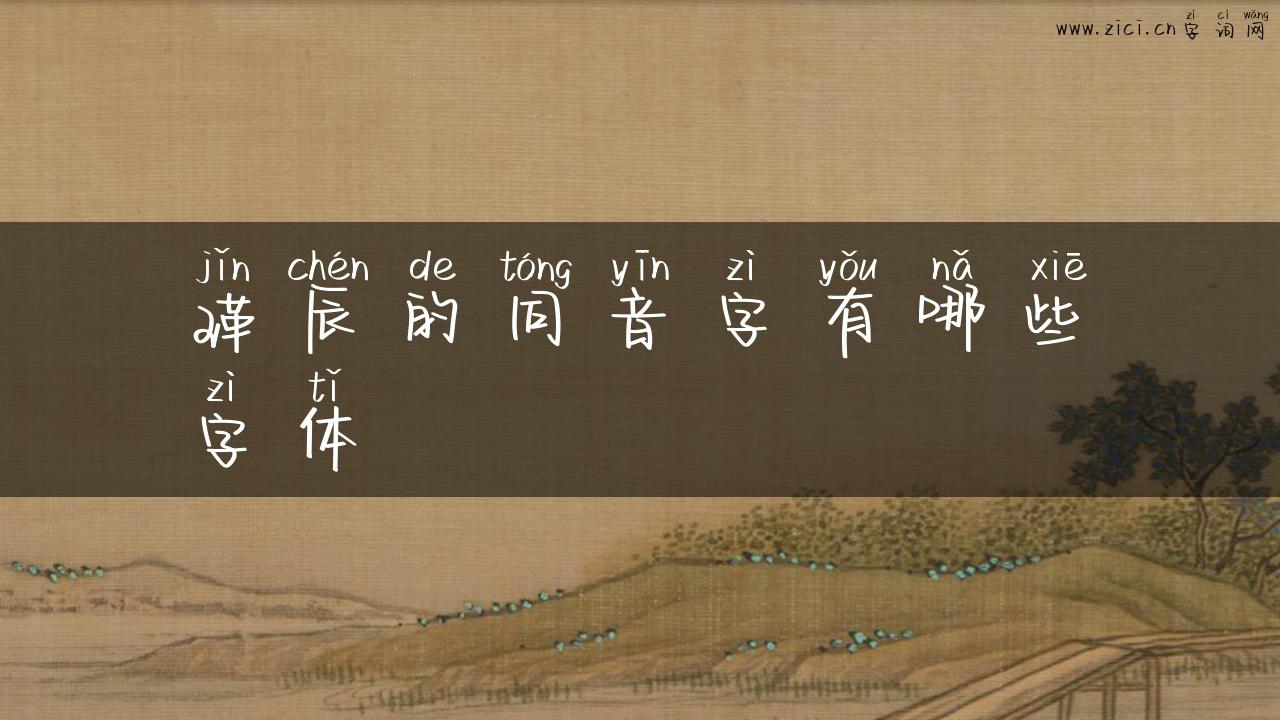 zì cí wǎng
www.zici.cn字词网
jǐn chén de tóng yīn zì yǒu nǎ xiē
瑾辰的同音字有哪些
zì tǐ
字体